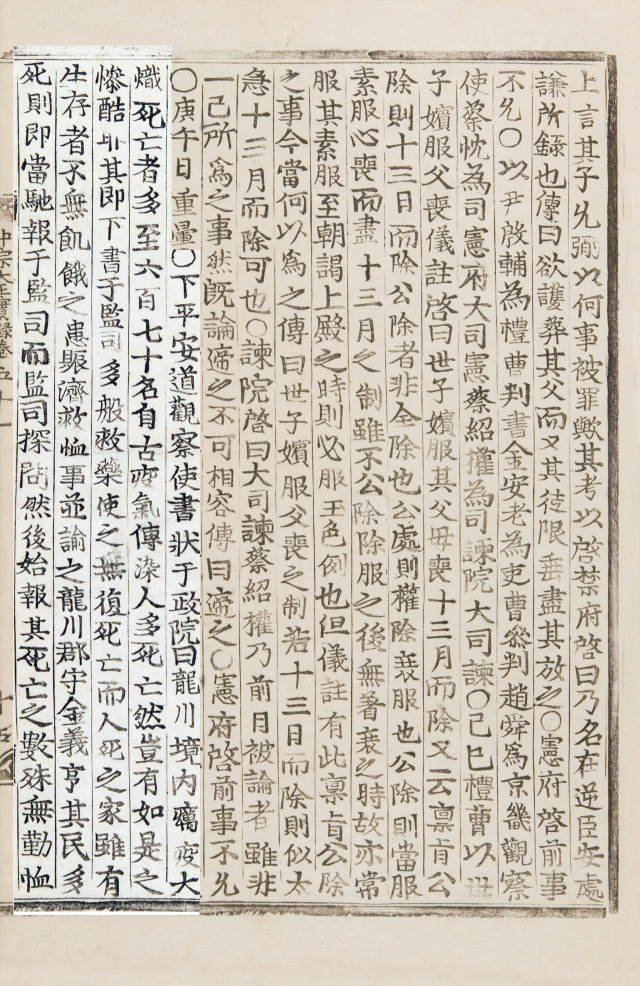 上言其子允弼以何事被罪歟其考以啓禁府啓曰乃名在逆臣安處
謙所錄也傳曰欲護葬其父而又其徒限垂盡其放之○憲府啓前事
不允○以尹啓輔為禮曹判書金安老為吏曹參判趙舜為京畿觀察
使蔡忱為司憲府大司憲蔡紹權為司諫院大司諫○己巳禮曹以世
子嬪服父喪儀註啓曰世子嬪服其父母喪十三月而除又云稟旨公
除則十三日而除公除者非全除也公處則權除衰服也公除則當服
素服心喪而盡十三月之制雖不公除除服之後無著衰之時故亦常
服其素服至朝謁上殿之時則必服玉色例也但儀註有此稟旨公除
之事今當何以為之傳曰世子嬪服父喪之制若十三日而除則似太
急十三月而除可也○諫院啓曰大司諫蔡紹權乃前月被論者雖非
一己所為之事然旣論遞之不可相容傳曰遞之○憲府啓前事不允
○庚午日重暈○下平安道觀察使書狀于政院曰龍川境內癘疫大
熾死亡者多至六百七十名自古疫氣傳染人多死亡然豈有如是之
慘酷耶其即下書于監司多般救藥使之無復死亡而人死之家雖有
生存者不無飢餓之患賑濟救恤事並諭之龍川郡守金義亨其民多
死則即當馳報于監司而監司探問然後始報其死亡之數殊無勤恤
中宗大王實錄卷五十一
十五